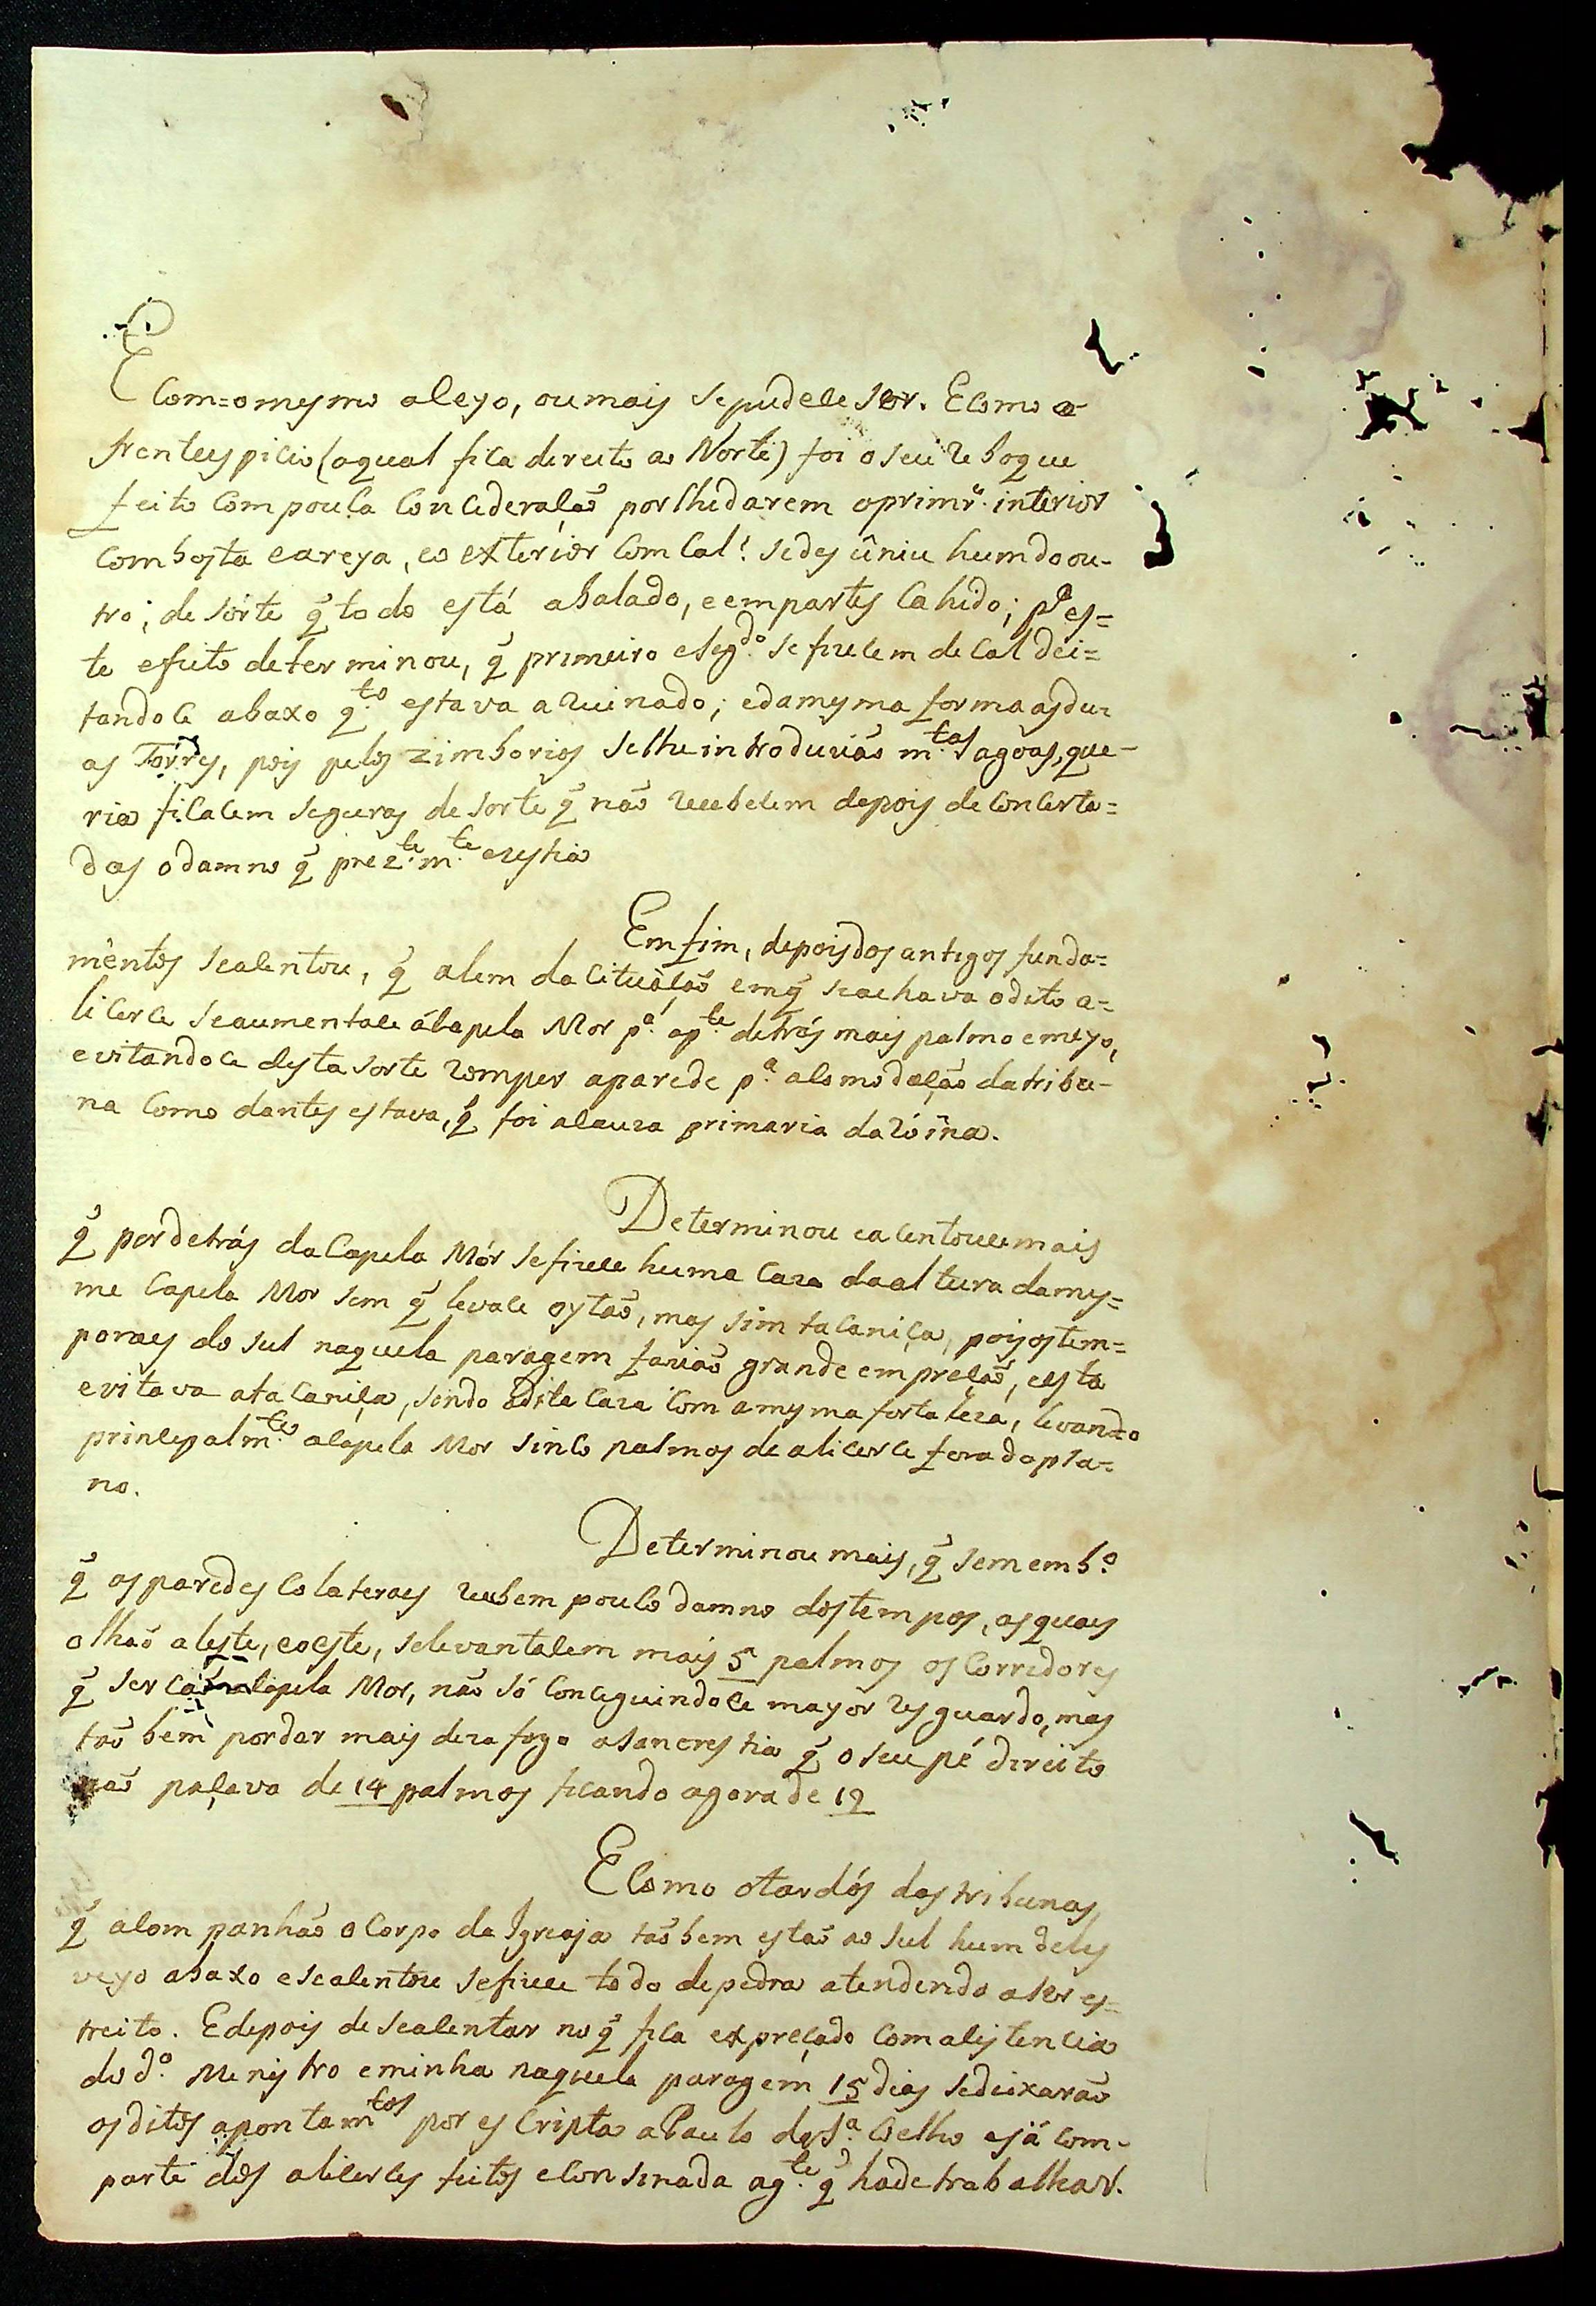 E com=o mesmo aceyo, ou mais se pudece ser. E como o
frentespicio (a qual fica direito ao Norte) foi o seu reboque
feito com pouca concideração por lhe darem o primr.º interior
com bosta e areya, e o exterior com cal: se des uniu hum do ou-
tro; de sórte q̃ todo está abalado, e em partes cahido; p.ª es=
te efeito determinou, q̃ primeiro e seg.do se fizecem de cal dei=
tandoce abaxo q.to estava a ruinado; e da mesma forma as du=
as Torres, pois pelos zimborios se lhe introduziaõ m.tas agoas, que-
ria ficacem seguras de sorte q̃ naõ recebecem depois de concerta=
das o damno q̃ prez.te m.te existia
Em fim, depois dos antigos funda=
mentos se acentou, q̃ alem da cituaçaõ em q̃ se achava o dito a=
licerce se aumentace á Capela Mor p.ª a p.te detrás mais palmo e meyo,
evitandoce desta sorte romper a parede p.ª a comodaçaõ da tribu-
na como dantes estava, q̃ foi a cauza primaria da roina.
Determinou e a centouce mais
q̃ por detrás da Capela Mór se fizece huma Caza da altura da mes=
ma Capela Mor sem q̃ levace oytaõ, mas sim tacaniça, pois os tem=
poraes do sul naquela paragem faziaõ grande empreçaõ, e esta
evitava a tacaniça, sendo a dita Caza com a mesma fortaleza, levando
principalm.te a Capela Mor sinco palmos de alicerce fora do pla=
no.
Determinou mais, q̃ sem emb.º
q̃ as paredes colateraes recebem pouco damno dos tempos, as quaes
olhaõ a leste, e oeste, se levantacem mais 5 palmos os corredores
q̃ sercaõ a Capela Mor, naõ só conceguindoce mayor resguardo, mas
taõ bem por dar mais dezafogo a sancrestia q̃ o seu pé direito
naõ paçava de 14 palmos ficando agora de 19
E como o tardós das tribunas
q̃ acompanhaõ o corpo da Igreaja taõ bem estaõ ao sul hum deles
veyo abaxo e se acentou se fizece todo de pedra atendendo a ser es=
treito. E depois de se acentar no q̃ fica expreçado com asistencia
do d.º Menistro e minha naquela paragem 15 dias se deixaraõ
os ditos apontam.tos por escripta a Paulo da S.ª Coelho e já com-
parte dos alicerces feitos e consinada a g.te q̃ hade trabalhar.